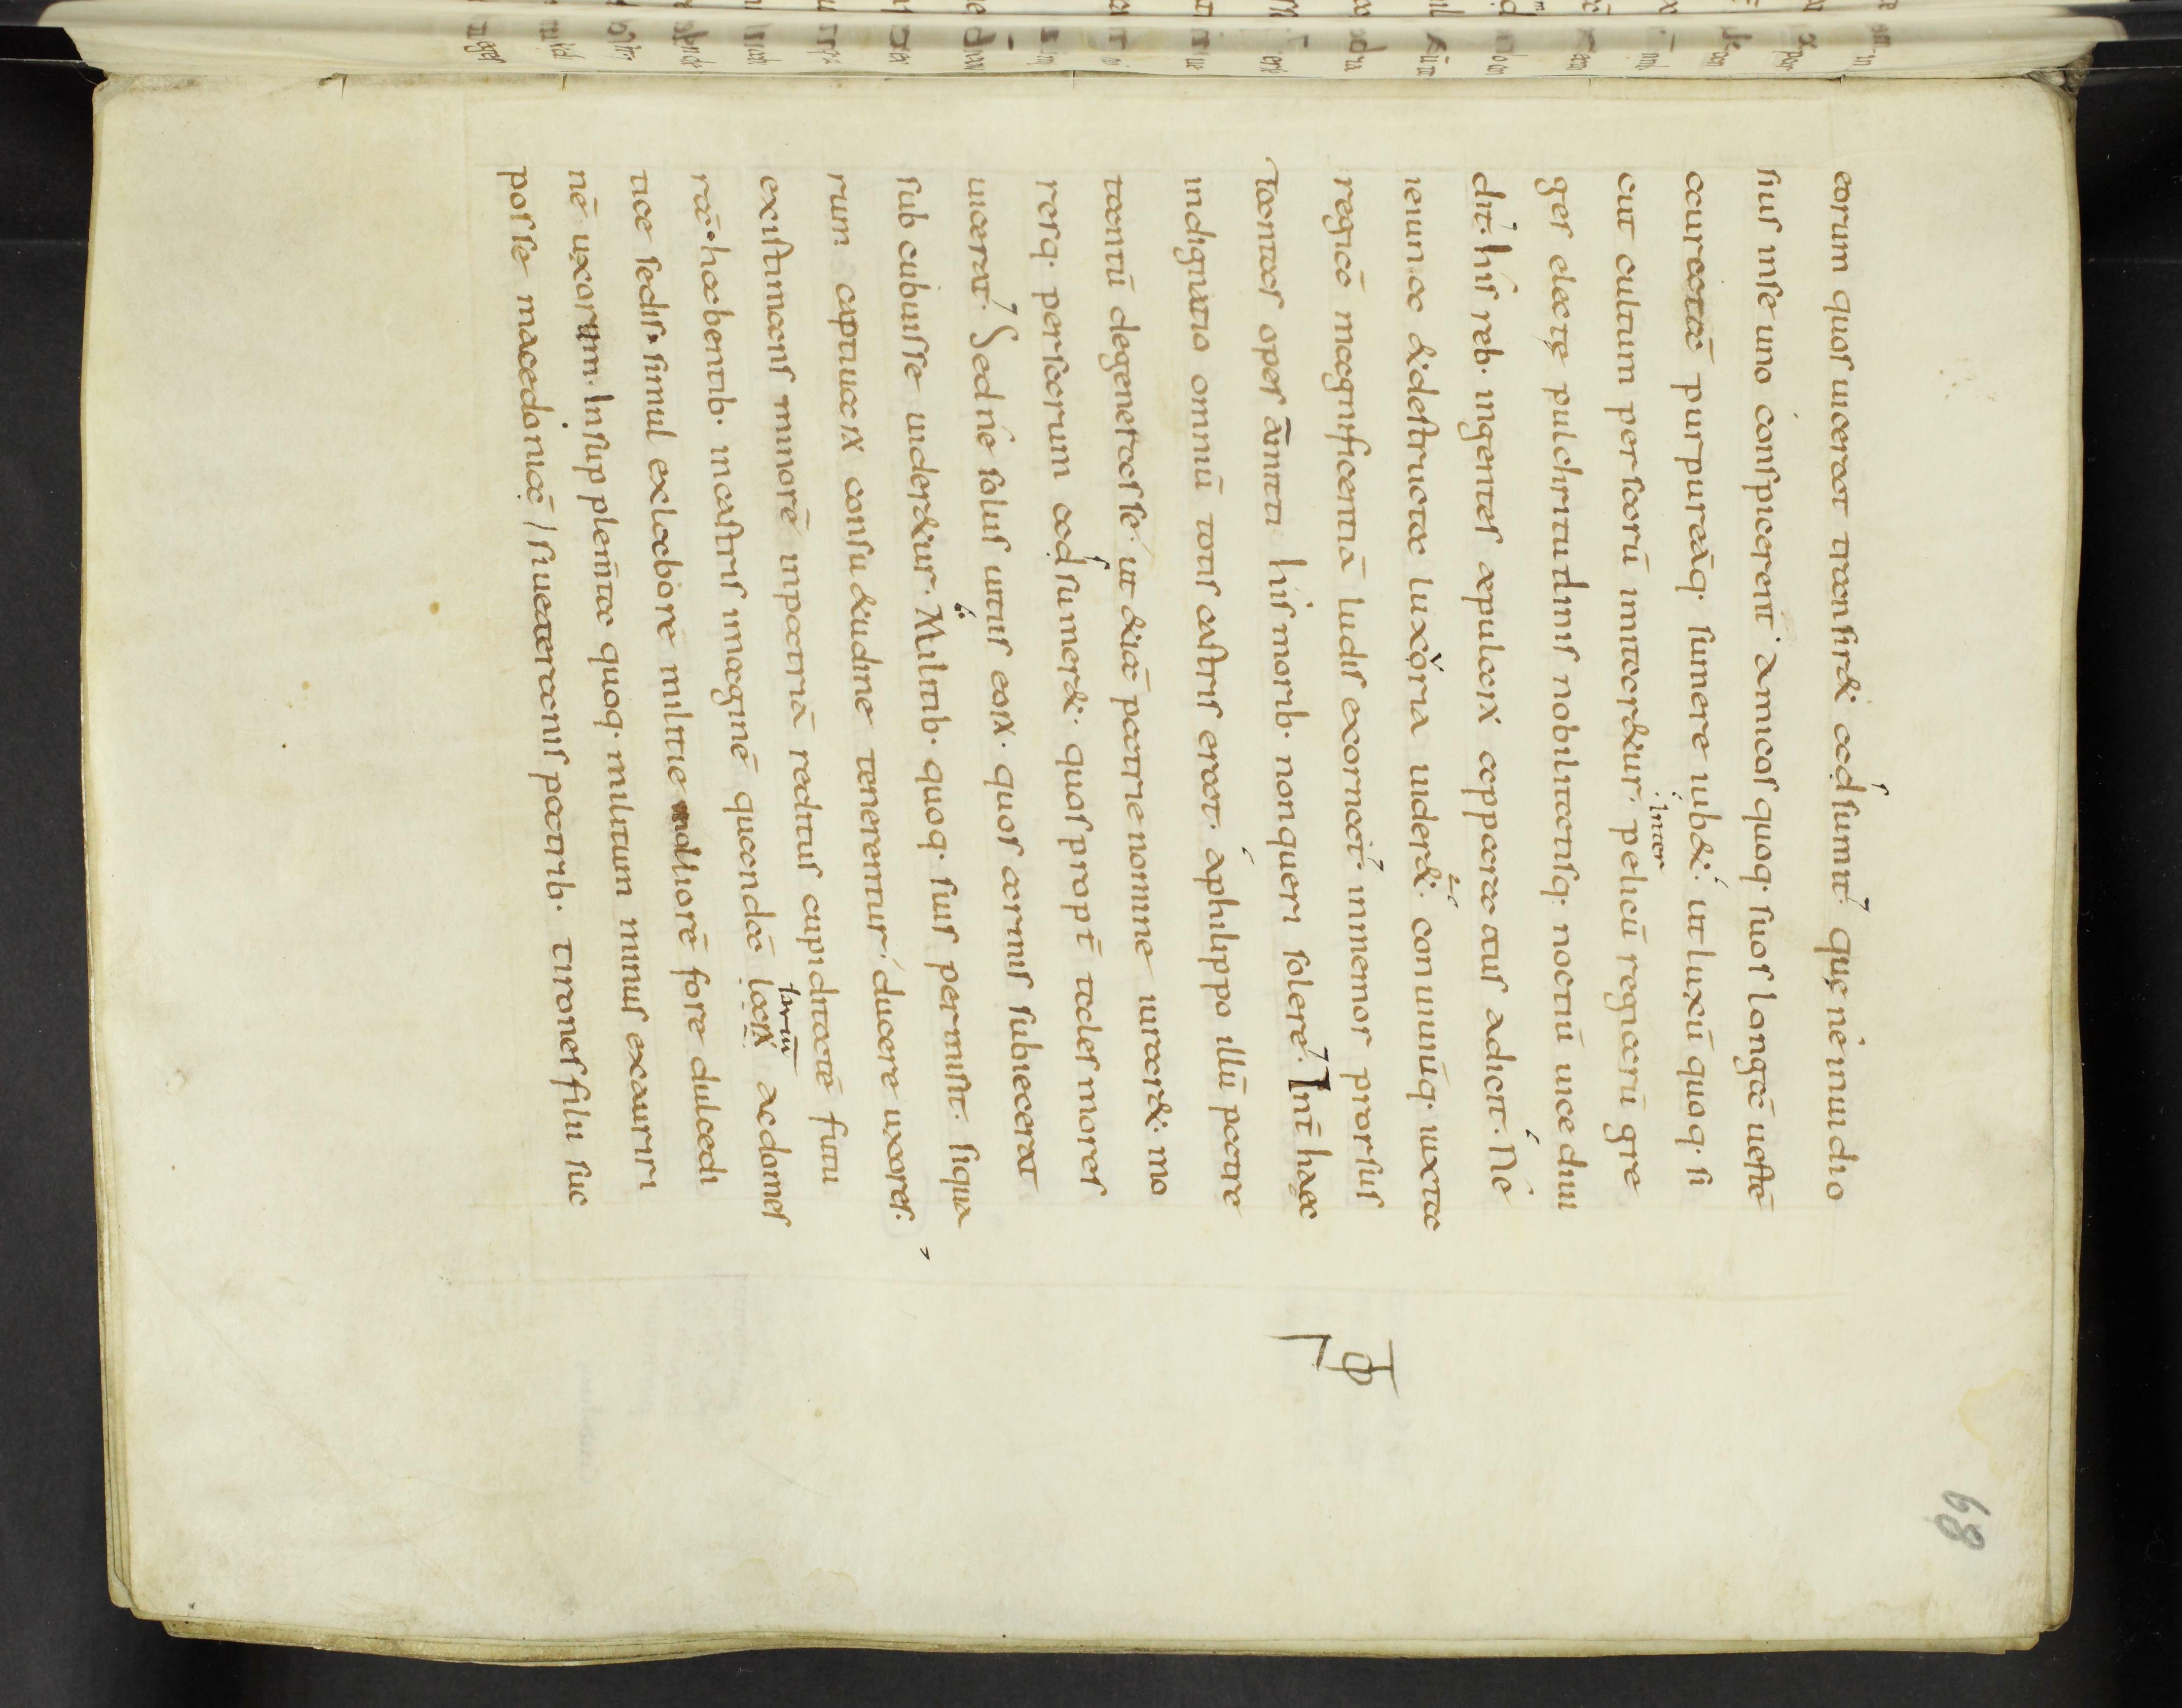 eorum quos uicerat transir& adsumit. quę neinuidio
sius inse uno conspicerent. amicos quoq. suos longā uestē
auratā purpureāq. sumere iub&. ut luxū quoq. si
cut cultum persarū imitar&ur. inter pelicū regiarū gre
ges dectę pulchritudinis nobilitatisq. noctiū uicedum
dit. his reb. ingentes æpularū apparatus adicit. Ne
ieiuna &destructa luxoria uider&. conuiuiūq. iuxta
regiā magnificentiā ludis exornat. inmemor prorsus
tantas opes amitti his morib. nonqueri solere. Int̄ haec
indignatio omniū totis castris erat. aphilippo illū patre
tantū degenerasse. ut &iā patrie nomine iurar&. mo
resq. persarum adsumer&. quos propt̄ tales mores
uicerat. Sedne solus uitiis eorū. quos armis subiecerat
subcubuisse uider&ur. Militib. quoq. suis permisit. siqua
rum captiuarū consu&udine tenerentur. ducere uxores.
existimans minorē inpatriā reditus cupiditatē futu
rā. habentib. incastris imaginē quandā larū larium acdomes
tice sedis. simul exlabore militie molliorē fore dulcedi
nē uxorum. Insupplemta quoq. militum minus exauriri
posse macedoniā / siueteranis patrib. tirones filii suc
68